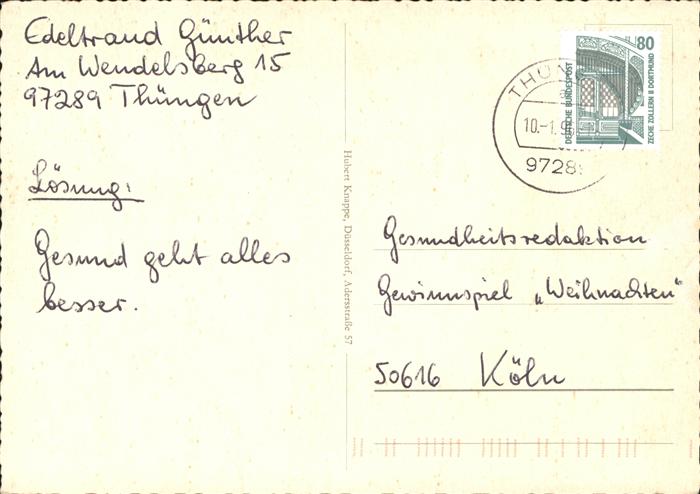 Edeltraud Günther
Am Wendelsberg 15
97289 Thüngen
Lösung:
Gesund geht alles
besser.
Hubert Knappe, Düsseldorf, Adersstraße 57
80
DEUTSCHE BUNDESPOST
ZECHE ZOLLERN II DORTMUND
THÜN
10.-1.96
9728
Gesundheitsredaktion
Gewinnspiel „Weihnachten"
50616 Köln